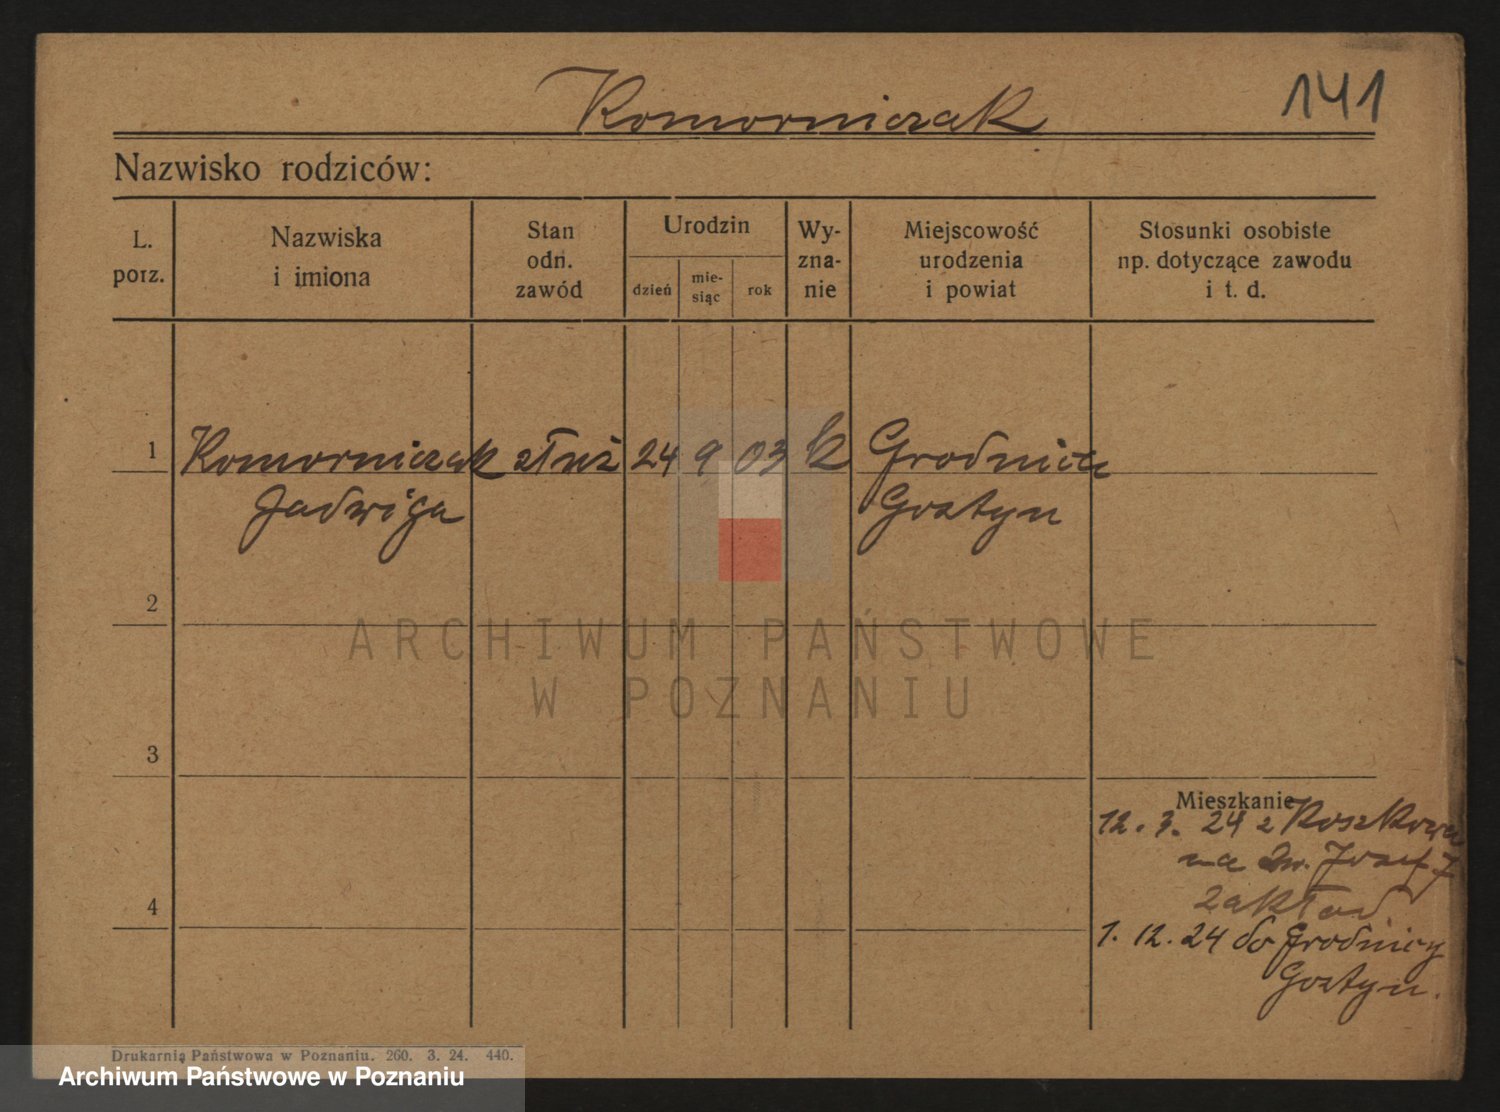 Komorniczak
141
Nazwisko rodziców:
L.
porz.
Nazwiska
i imiona
Stan
odn.
zawód
Urodzin
dzień
mie-
siąc
rok
Wy-
zna-
nie
Miejscowość
urodzenia
i powiat
Stosunki osobiste
np. dotyczące zawodu
i t. d.
1 Komorniczak służ 24 9 03 k Grodnica
Jadwiga Gostyn
2
ARCHIWUM PAŃSTWOWE
W POZNANIU
3
Mieszkanie
12. 3. 24 z Koszkowa
na Józef
4 zakład
1. 12. 24 do Grodnicy
Gostyn.
Drukarnia Państwowa w Poznaniu. 260. 3. 24. 440.
Archiwum Państwowe w Poznaniu